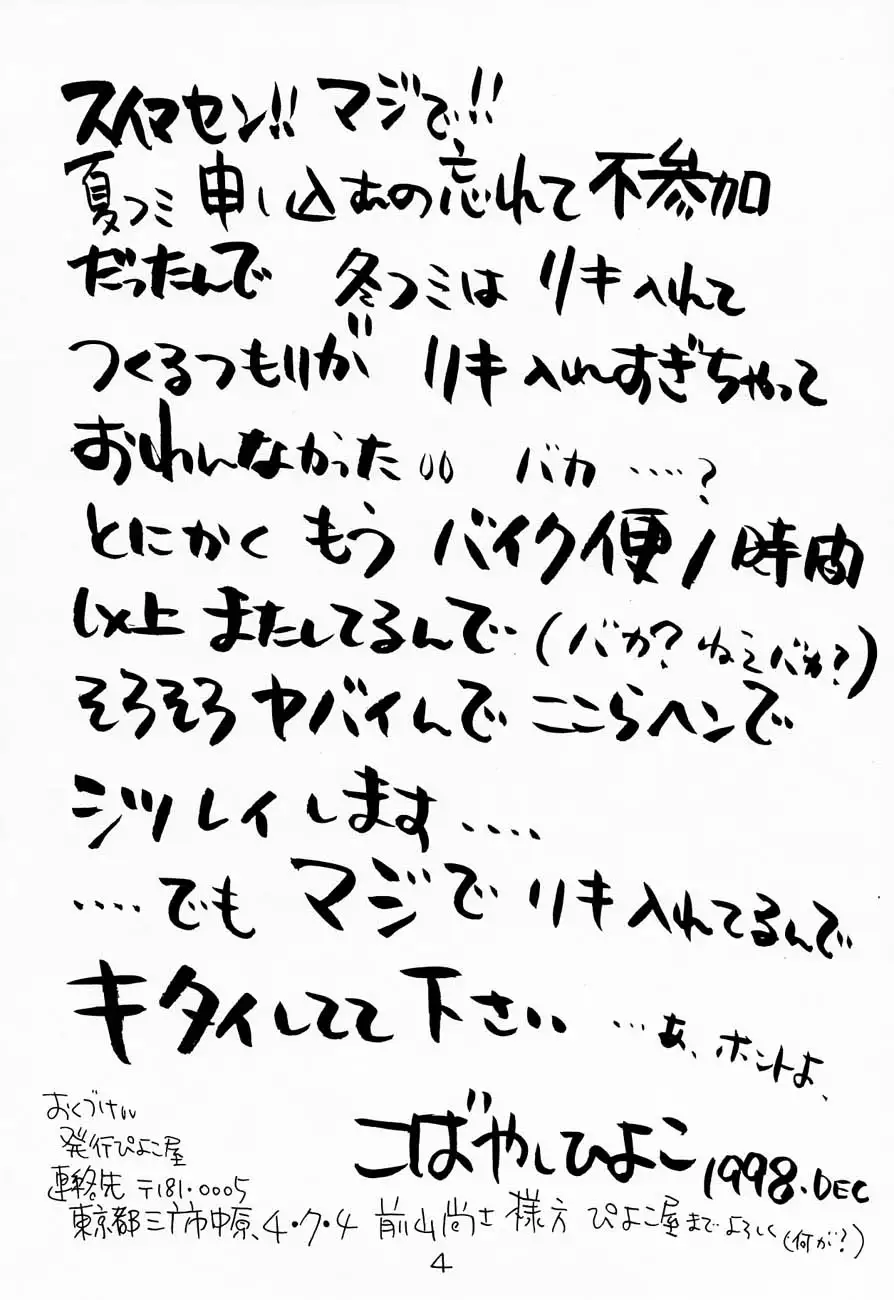 スイマセン!! マジで!!
夏コミ 申し込むの忘れて 不参加
だったんで 冬コミは リキ入れて
つくるつもりが リキ入れすぎちゃって
おわんなかった‥ バカ ‥‥?
とにかく もう バイク便 1時間
以上 またしてるんで (バカ? ねえバカ?)
そろそろ ヤバイんで ここらヘンで
シツレイします ‥‥
‥‥でも マジで リキ入れてるんで
キタイしてて 下さい …あ、ホントよ、
こばやしひよこ 1998.DEC
おくづけ‥
発行ぴよこ屋
連絡先 〒181.0005
東京都三鷹市中原、4・7・4 前山尚士 様方 ぴよこ屋まで よろしく (何が?)
4